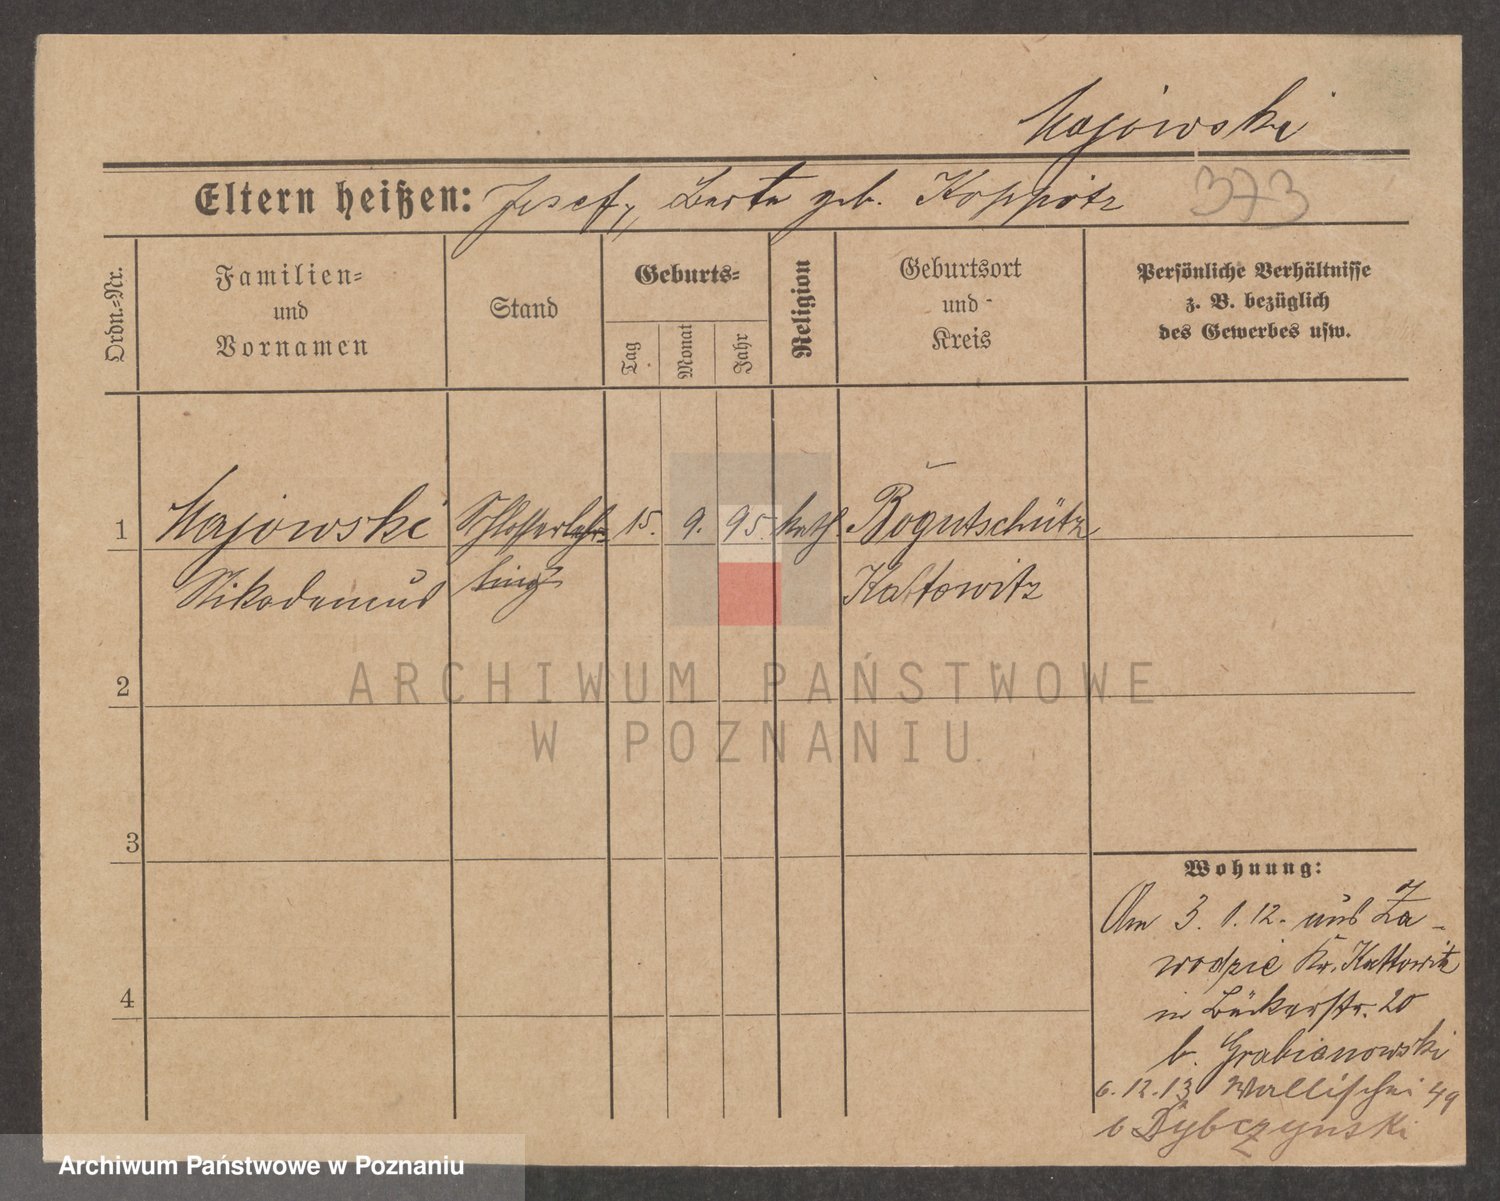 Majowski
Eltern heißen: Josef, Berta geb. Koppitz 373
Ordn.-Nr.
Familien-
und
Vornamen
Stand
Geburts-
Tag
Monat
Jahr
Religion
Geburtsort
und
Kreis
Persönliche Verhältnisse
z. B. bezüglich
des Gewerbes usw.
1 Majowski Schlosserlehr- 15. 9. 95. kath. Bogutschütz
Nikodemus ling Kattowitz
2
3
4
Wohnung:
Am 3. 1. 12. aus Za-
wodzie Kr. Kattowitz
in Bäckerstr. 20
b. Grabianowski
6.12.13 Wallischei 49
b Dybczynski
ARCHIWUM PAŃSTWOWE
W POZNANIU
Archiwum Państwowe w Poznaniu